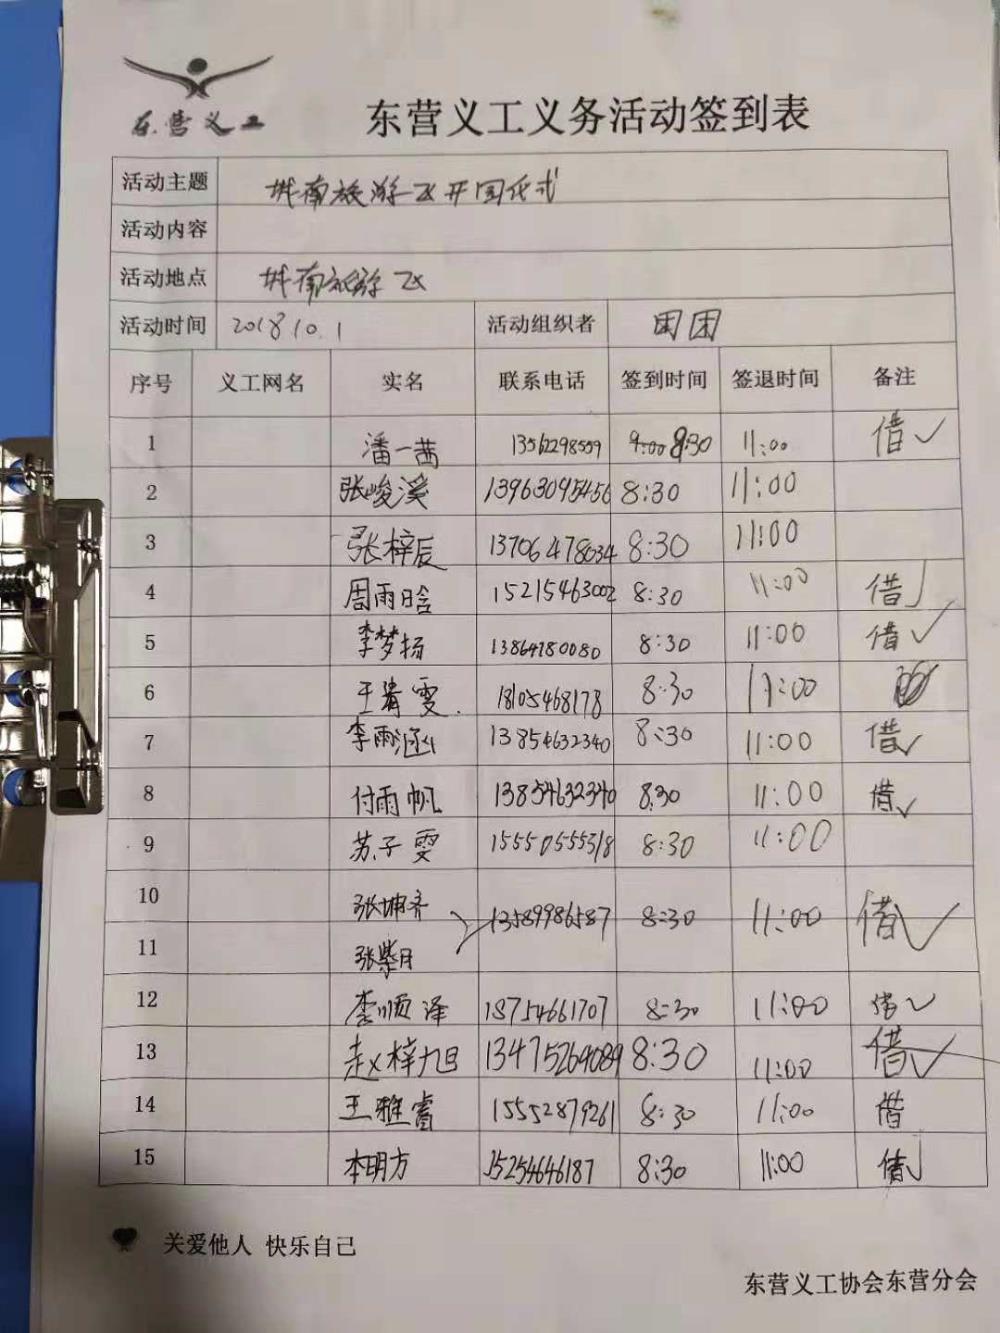 东营义工
东营义工义务活动签到表
活动主题 城南旅游区开园仪式
活动内容
活动地点 城南旅游区
活动时间 2018 10.1 活动组织者 团团
序号 义工网名 实名 联系电话 签到时间 签退时间 备注
1 潘一茜 13562298559 8:30 11:00 借✓
2 张峻溪 13963095456 8:30 11:00
3 张梓辰 13706478034 8:30 11:00
4 周雨晗 15215463002 8:30 11:00 借✓
5 李梦扬 13864780080 8:30 11:00 借✓
6 王清雯 18105468178 8:30 11:00
7 李雨涵 13854632340 8:30 11:00 借✓
8 付雨帆 13854632340 8:30 11:00 借✓
9 苏子雯 15550555318 8:30 11:00
10 张坤齐 13589986587 8:30 11:00 借✓
11 张紫月
12 李顺泽 18754661707 8:30 11:00 借✓
13 赵梓旭 13475264089 8:30 11:00 借✓
14 王雅睿 15552879261 8:30 11:00 借
15 李明方 15254646187 8:30 11:00 借✓
关爱他人 快乐自己
东营义工协会东营分会